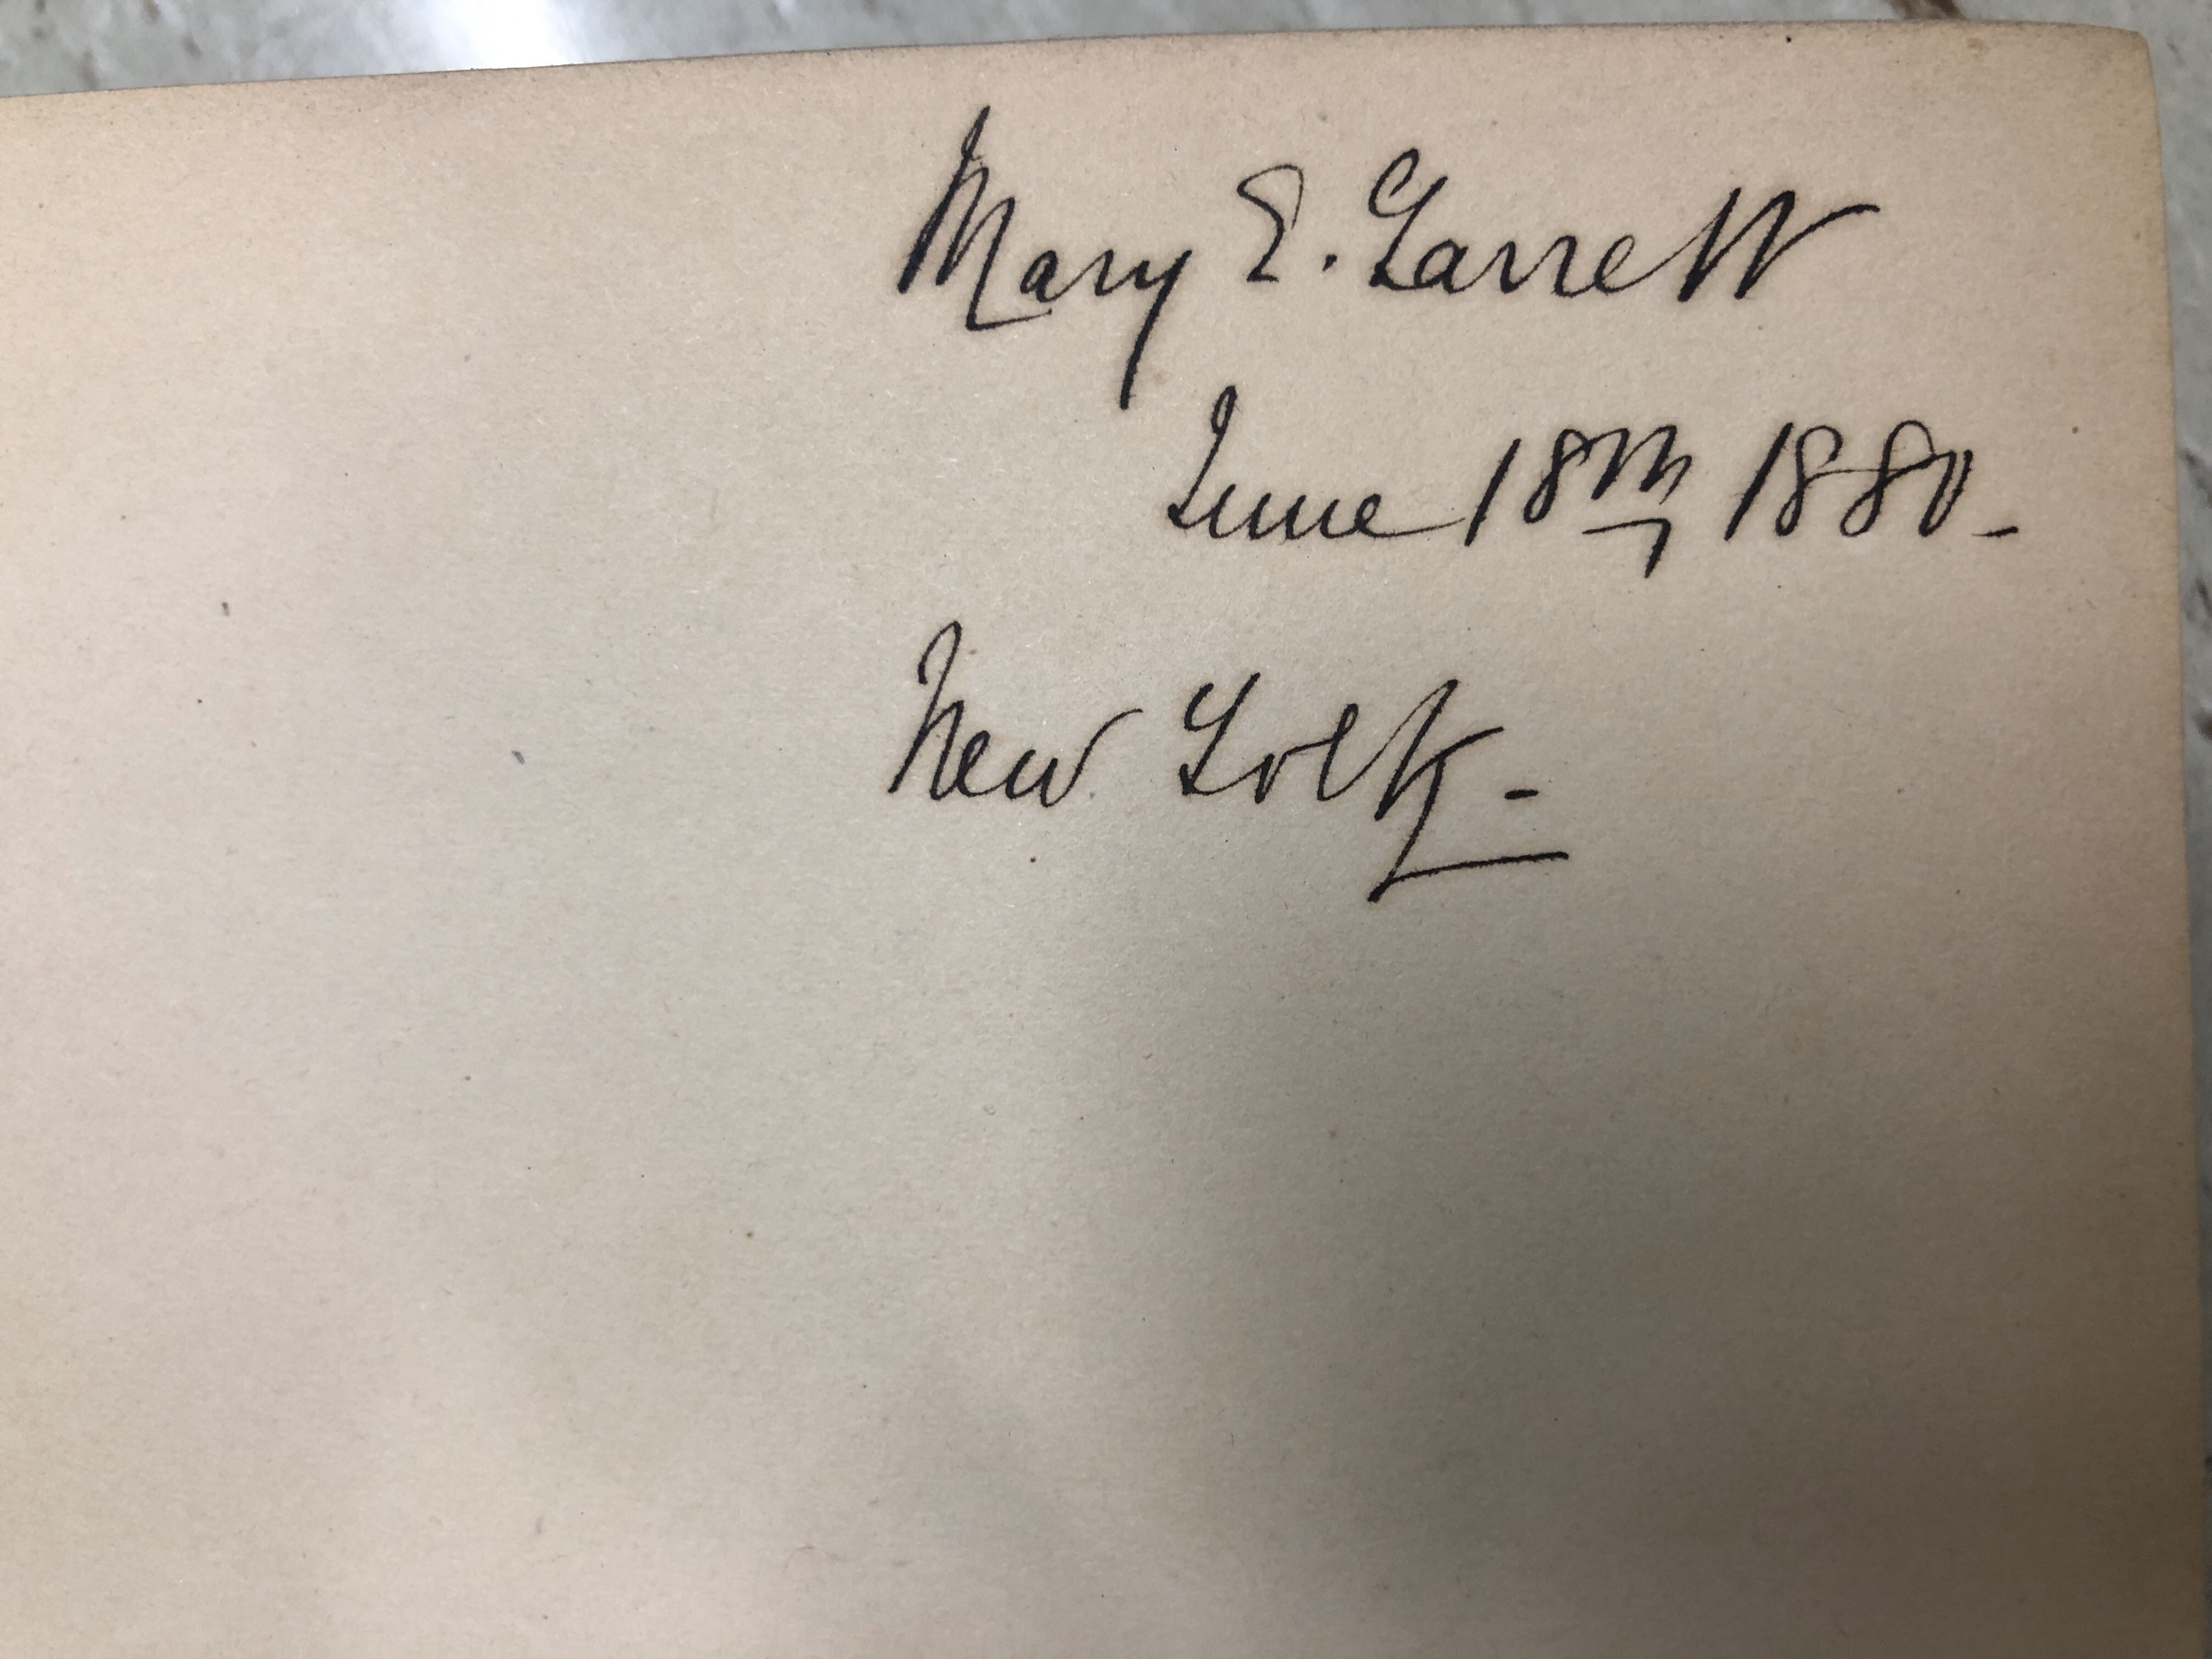 Mary E. Garrett
June 18th, 1880.
New York -